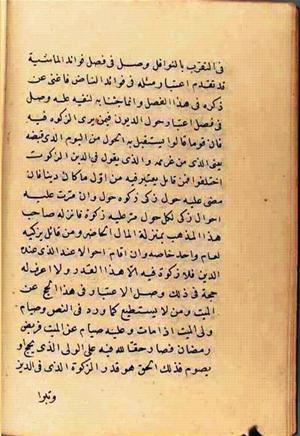 فى التقرب بالنوافل وصل فى فصل فوائد الماشية
قد تقدم اعتبار مثله فى فوائد الناض فاغنى عن
ذكره فى هذا الفصل وانما جئنا به لننبه عليه وصل
فى فصل اعتبار حول الديون فيمن يرى الزكوة فيه
فان قوما قالوا يستقبل به الحول من اليوم الذى قبضه
يعنى الذى من غريمه والذى يقول فى الدين الزكوة
اختلفوا فمن قائل يعتبر فيه من اول ما كان دينا فان
مضى عليه حول زكى زكوة حول وان مرت عليه
احوال زكى لكل حول مر عليه زكوة فانزله صاحب
هذا المذهب بمنزلة المال الحاضر ومن قائل يزكيه
لعام واحد خاصة وان اقام احوالا عند الذى عنده
الدين فلا زكوة فيه الا هذا القدر ولا اعرف له
حجة فى ذلك وصل الاعتبار فى هذا الحج عن
الميت ومن لا يستطيع كما ورد فى النص وصيام
ولى الميت اذا مات وعليه صيام عن الميت فرض
رمضان فصار حقا لله فيه على الولى الذى يحج او
يصوم فذلك الحق هو قدر الزكوة الذى فى الدين
وتبرا